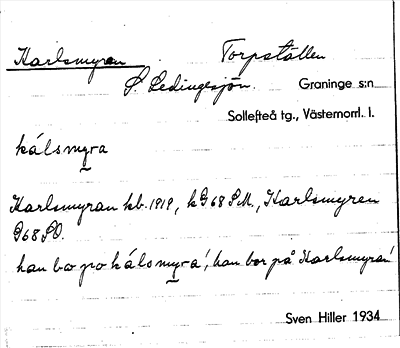 Karlsmyran Torpställen
S. Ledingesjön. Graninge s:n
Sollefteå tg., Västernorrl. l.
kálsmyra
Karlsmyran kb. 1919, k G68 S.M., Karlsmyren
G68 SO.
han bor po kálsmyra', 'han bor på Karlsmyran'
Sven Hiller 1934